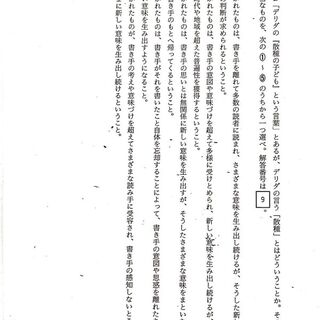 「デリダの『散種の子ども』という言葉」とあるが、デリダの言う「散種」とはどういうことか。そ
なものを、次の①～⑤のうちから一つ選べ。解答番号は 9 。
れたものは、書き手を離れて多数の読者に読まれ、さまざまな意味を生み出し続けるが、そうした新
の判断が求められるということ。
れたものは、書き手の意図や意味づけを超えて多様に受けとめられ、新しい意味を生み出し続けるが、
代や地域を超えた普遍性を獲得するということ。
れたものは、書き手の思いとは無関係に新しい意味を生み出すが、そうしたさまざまな意味をまとい
き手のもとへ帰ってくるということ。
れたものは、書き手がそれを書いたこと自体を忘却することによって、書き手の意図や思惑を離れた
い意味を生み出すようになること。
れたものが、書き手の考えや意味づけを超えてさまざまな読み手に受容され、書き手の感知しないとこ
に新しい意味を生み出し続けるということ。